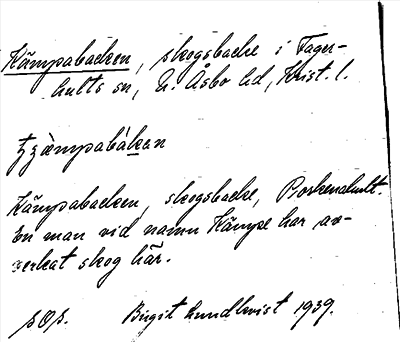 Kämpabacken, skogsbacke i Fager-
hults sn, N. Åsbo hd, Krist. l.
Kämpabacken, skogsbacke, Boskenahult.
En man vid namn Kämpe har av-
verkat skog här.
Birgit Lundkvist 1939.